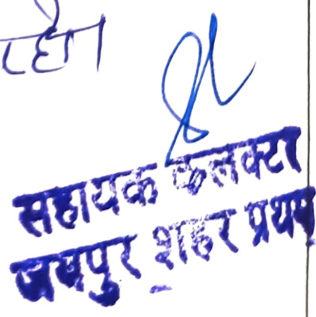 रहे।
सहायक कलक्टर
जयपुर शहर प्रथम